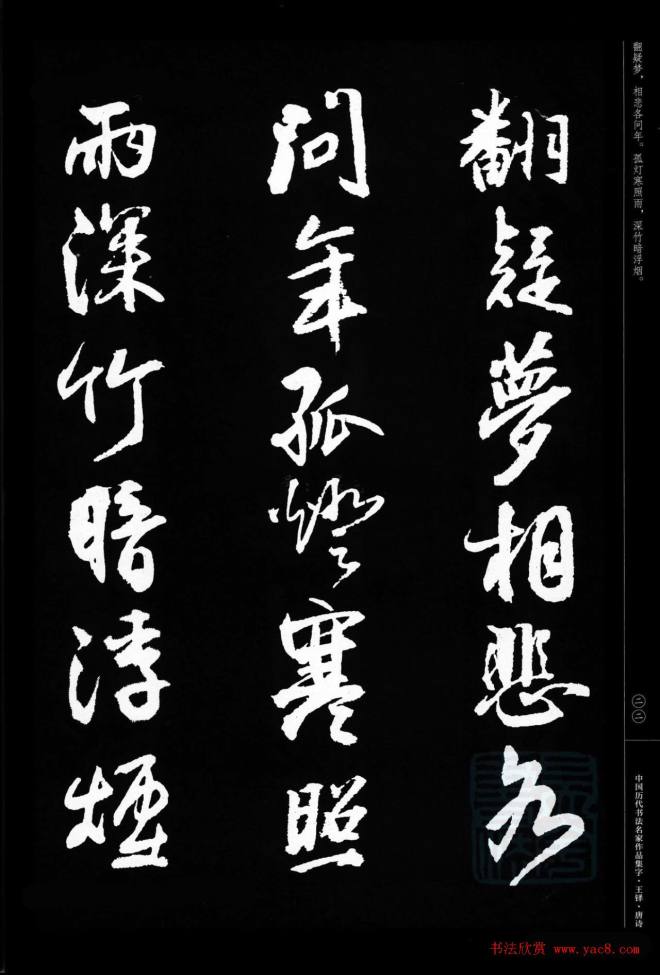 翻疑夢相悲各
問年孤燈寒照
雨深竹暗浮煙
翻疑梦，相悲各问年。孤灯寒照雨，深竹暗浮烟。
二二
中国历代书法名家作品集字·王铎·唐诗
书法欣赏 www.yac8.com